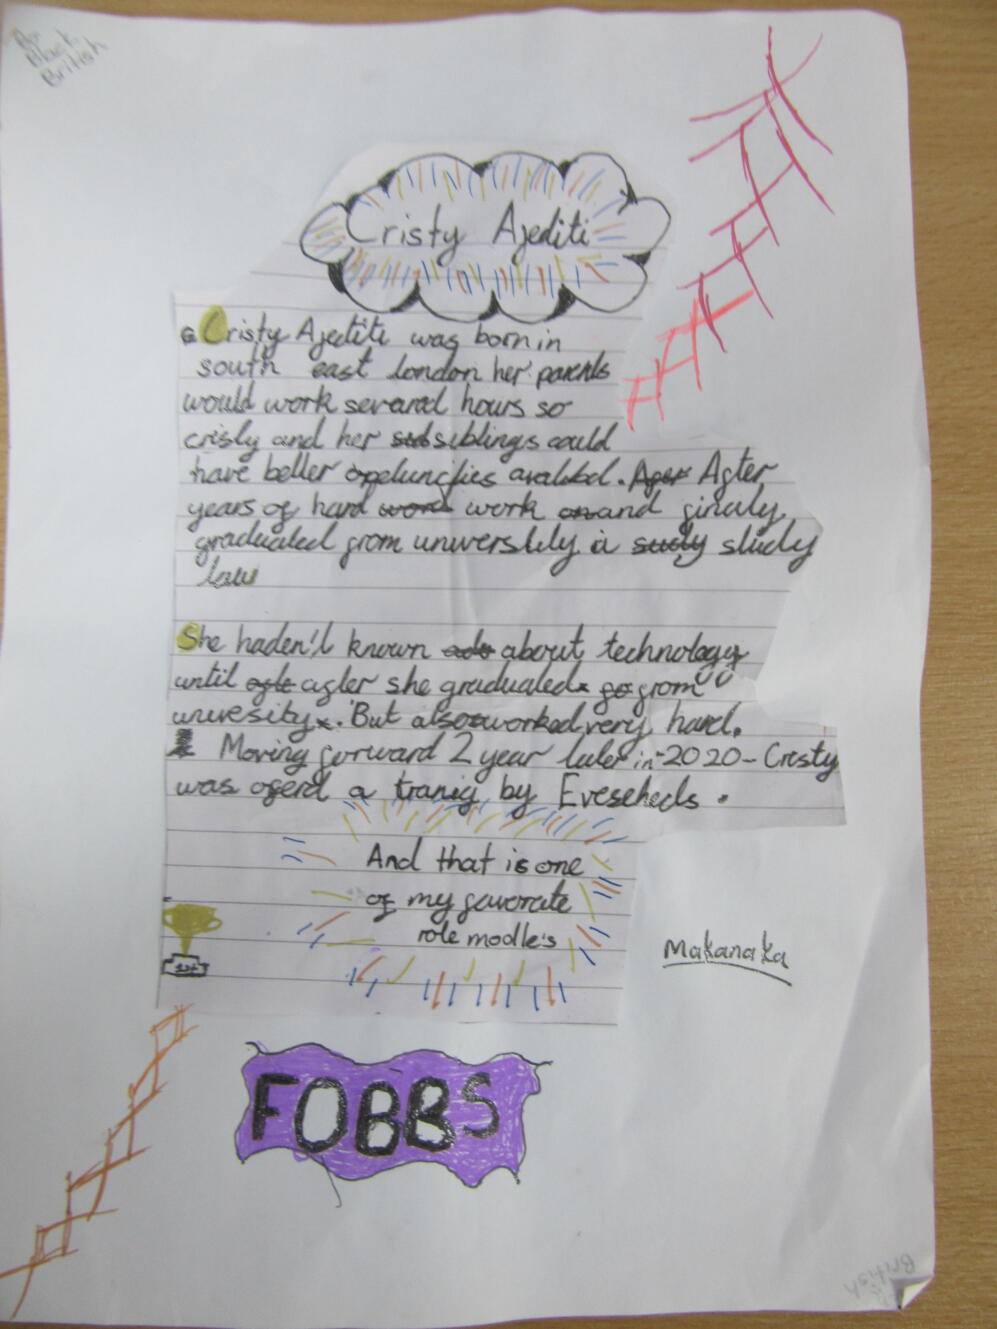 Black
British
Cristy Ajediti
Cristy Ajediti was born in
south east london her parents
would work several hours so
cristy and her siblings could
have better
After
years of hard work and finaly
graduated from a study
law
She haden't known about technology
until after she graduated from
univesity. But also worked very hard.
Moving forward 2 year later in 2020 - Cristy
was oferd a tranig by Evesheds.
And that is one
of my favorate
role modle's
1st
Makanaka
FOBBS
British